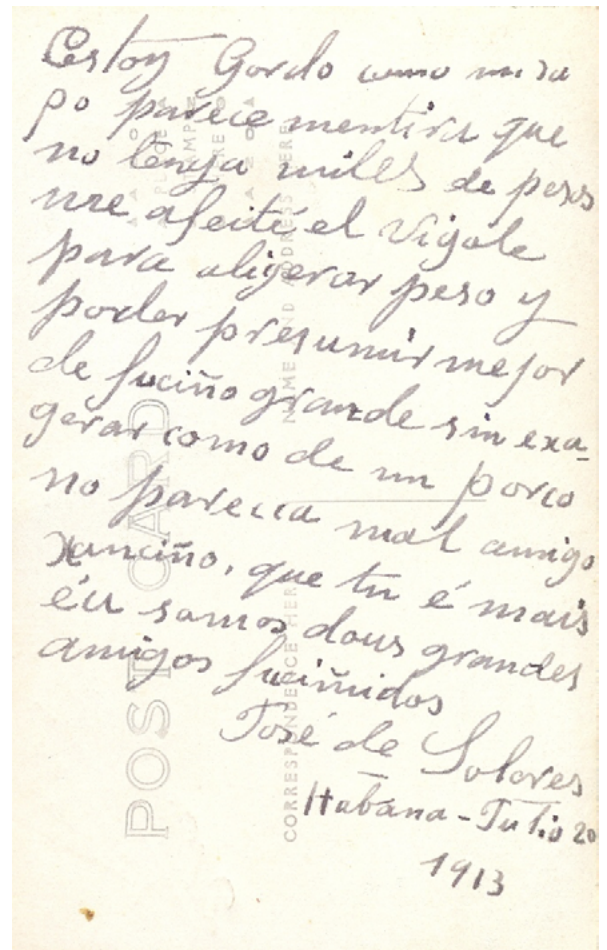 Estoy Gordo como un sa
po parece mentira que
no tenja miles de pesos
me afeité el vigote
para aligerar peso y
poder presumir mejor
de fuciño grande sin exa-
gerar como de un porco
no parecia mal amigo
Xanciño, que tu é mais
éu somos dous grandes
amigos fuciñudos
José de Solares
Habana - Julio 20
1913
POST CARD
CORRESPONDENCE HERE
NAME AND ADDRESS HERE
PLACE
STAMP
HERE